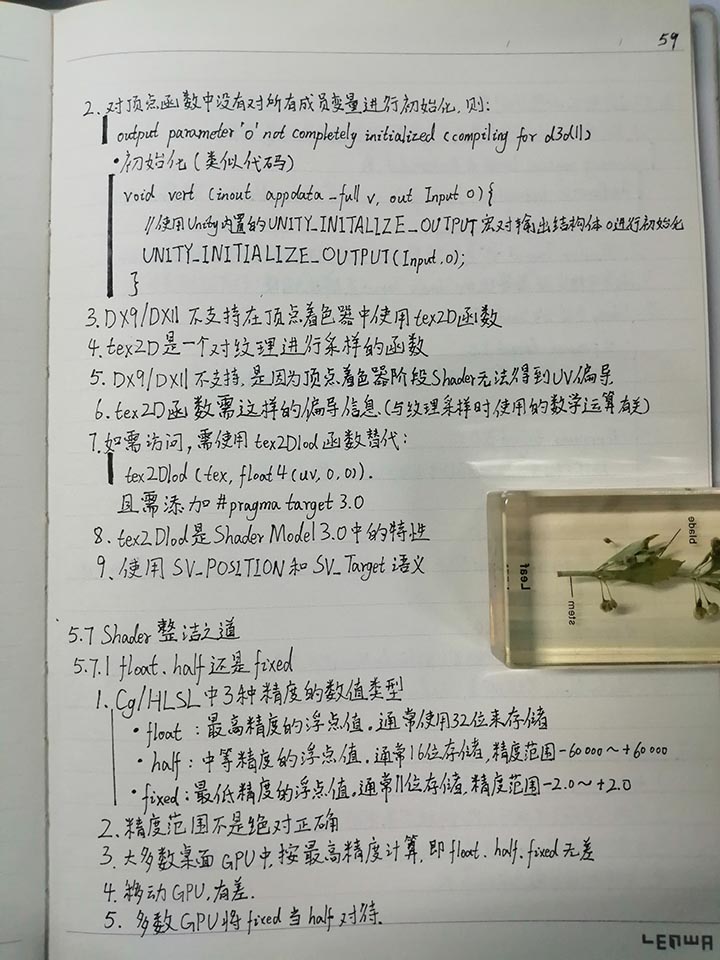 59
2. 对顶点函数中没有对所有成员变量进行初始化, 则:
output parameter 'o' not completely initialized (compiling for d3d11)
•初始化(类似代码)
void vert (inout appdata_full v, out Input o){
//使用Unity内置的UNITY_INITALIZE_OUTPUT宏对输出结构体o进行初始化
UNITY_INITIALIZE_OUTPUT(Input.o);
}
3. DX9/DX11不支持在顶点着色器中使用tex2D函数
4. tex2D是一个对纹理进行采样的函数
5. DX9/DX11不支持, 是因为顶点着色器阶段Shader无法得到UV偏导.
6. tex2D函数需这样的偏导信息.(与纹理采样时使用的数学运算有关)
7. 如需访问, 需使用tex2Dlod函数替代:
tex2Dlod (tex, float4(uv, 0, 0)).
且需添加 #pragma target 3.0
8. tex2Dlod是Shader Model 3.0中的特性
9. 使用 SV_POSITION和SV_Target语义
blade
Leaf
stem
5.7 Shader 整洁之道
5.7.1 float、half还是fixed
1. Cg/HLSL中3种精度的数值类型
• float : 最高精度的浮点值。通常使用32位来存储
• half : 中等精度的浮点值。通常16位存储, 精度范围-60000~+60000
• fixed : 最低精度的浮点值。通常11位存储, 精度范围-2.0~+2.0
2. 精度范围不是绝对正确
3. 大多数桌面GPU中, 按最高精度计算, 即float、half、fixed无差
4. 移动GPU, 有差.
5. 多数GPU将fixed当half对待.
LENWA